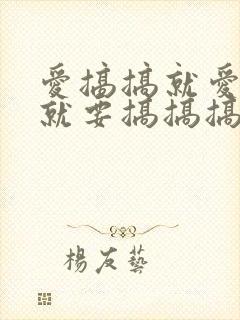 愛搞搞就愛
就要搞搞搞
楊友藝